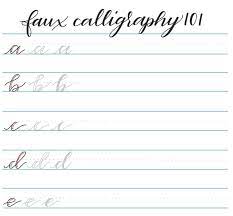 faux calligraphy 101
a a a
b b b
c c c
d d d
e e e